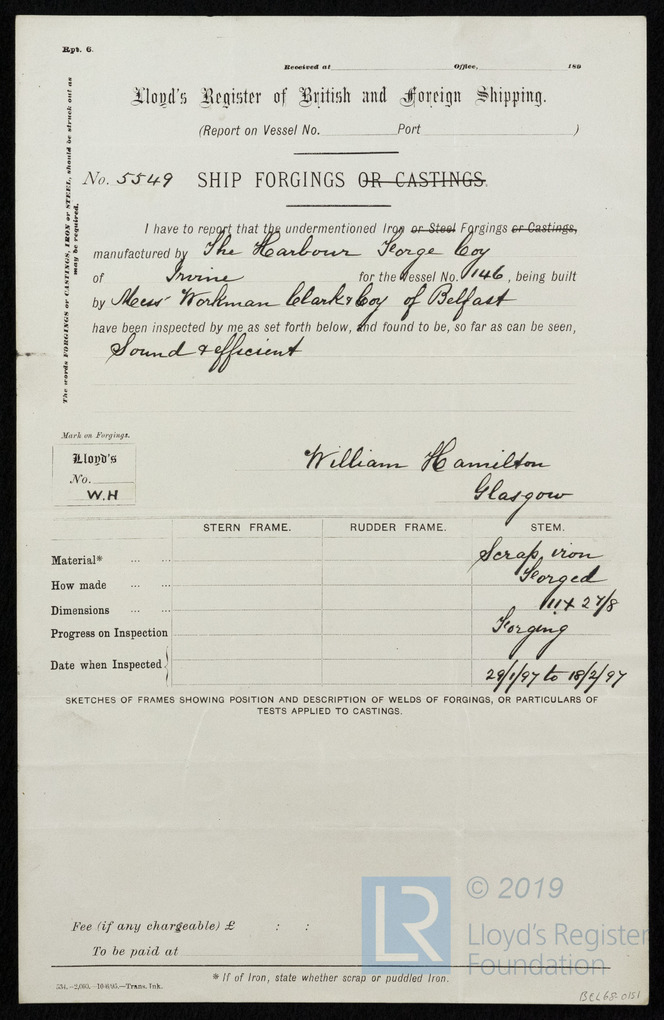 Rpt. 6.
Received at Office, 189
Lloyd's Register of British and Foreign Shipping.
(Report on Vessel No. Port )
No. 5549 SHIP FORGINGS OR CASTINGS.
The words FORGINGS or CASTINGS, IRON or STEEL, should be struck out as
may be required.
I have to report that the undermentioned Iron or Steel Forgings or Castings,
manufactured by The Harbour Forge Coy
of Irvine for the Vessel No. 146, being built
by Mess Workman Clark & Coy of Belfast
have been inspected by me as set forth below, and found to be, so far as can be seen,
Sound & efficient
Mark on Forgings.
Lloyd's
No.
W.H
William Hamilton
Glasgow
STERN FRAME. RUDDER FRAME. STEM.
Material* ... ... Scrap iron
How made ... ... Forged
Dimensions ... ... 11 x 2 7/8
Progress on Inspection Forging
Date when Inspected 29/1/97 to 18/2/97
SKETCHES OF FRAMES SHOWING POSITION AND DESCRIPTION OF WELDS OF FORGINGS, OR PARTICULARS OF
TESTS APPLIED TO CASTINGS.
Fee (if any chargeable) £ : :
To be paid at
* If of Iron, state whether scrap or puddled Iron.
Trans. Ink.
LR
© 2019
Lloyd's Register
Foundation
BEL68-0151